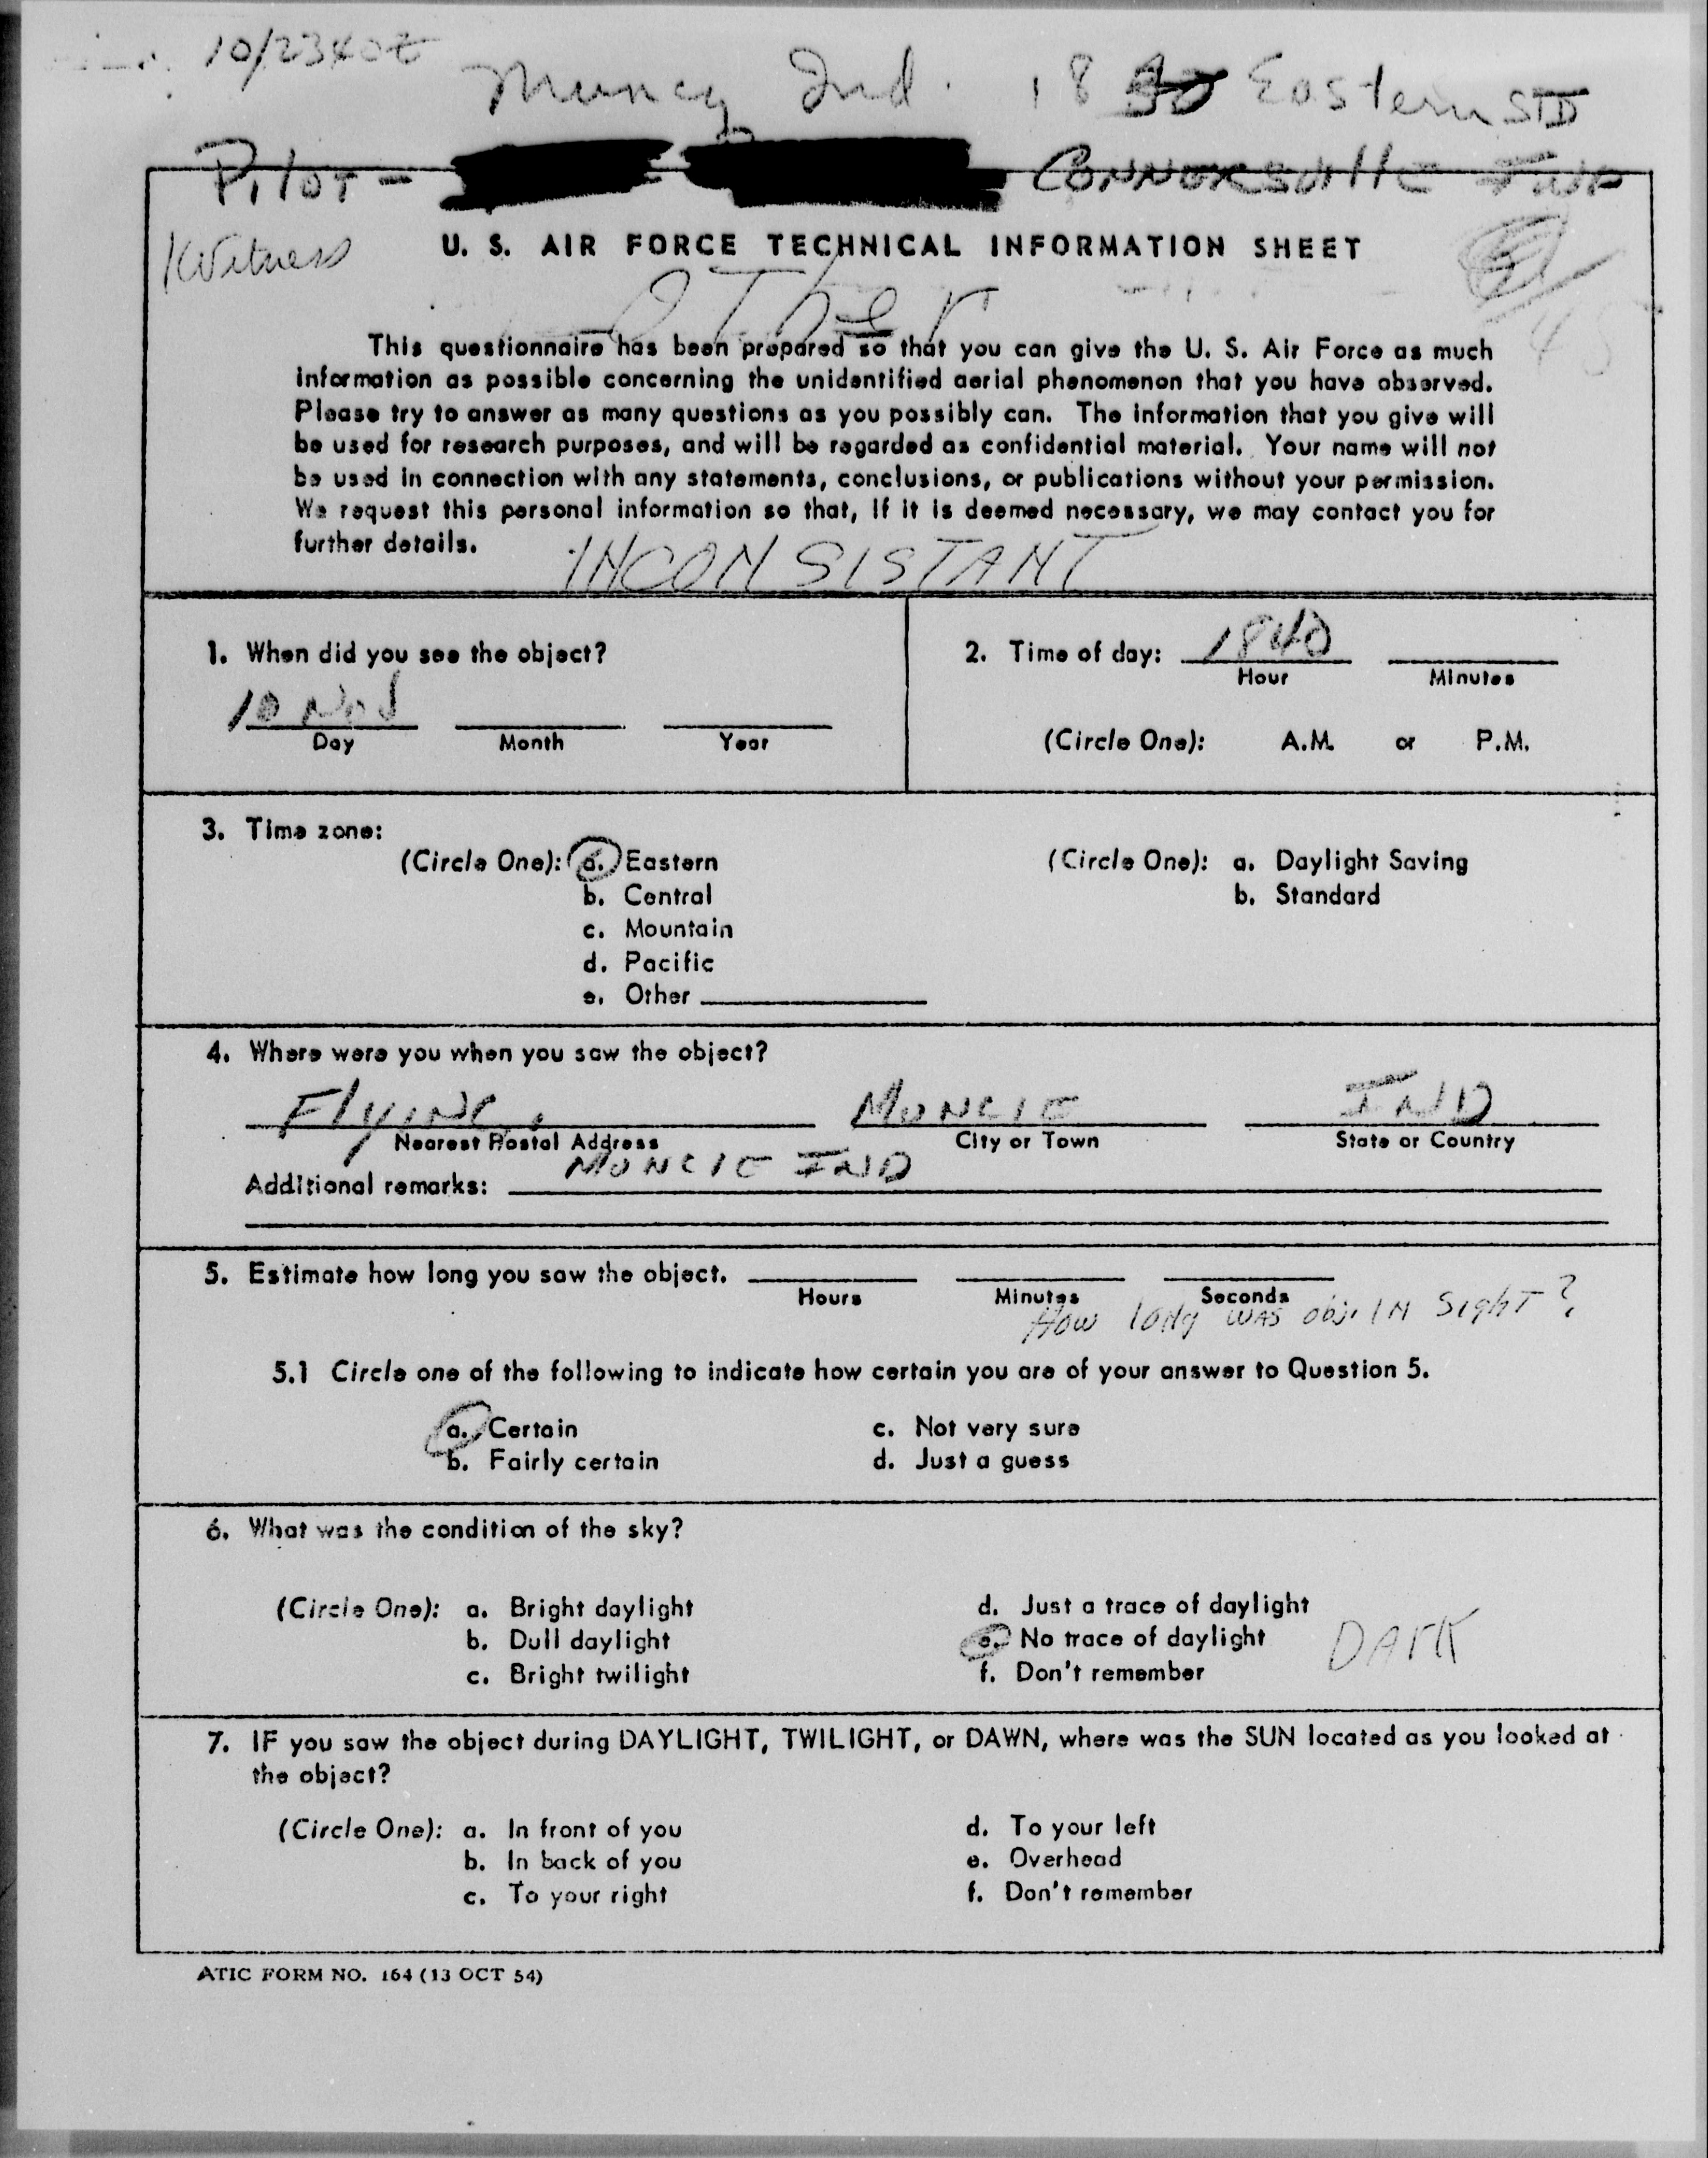 10/2340Z
Muncy Ind. 18 Eastern STD
Pilot - CONNORSVILLE IND
Witness
U. S. AIR FORCE TECHNICAL INFORMATION SHEET
OTher
This questionnaire has been prepared so that you can give the U. S. Air Force as much
information as possible concerning the unidentified aerial phenomenon that you have observed.
Please try to answer as many questions as you possibly can. The information that you give will
be used for research purposes, and will be regarded as confidential material. Your name will not
be used in connection with any statements, conclusions, or publications without your permission.
We request this personal information so that, if it is deemed necessary, we may contact you for
further details.
INCONSISTANT
1. When did you see the object?
10 Nov
Day Month Year
2. Time of day: 1840
Hour Minutes
(Circle One): A.M. or P.M.
3. Time zone:
(Circle One): a. Eastern
b. Central
c. Mountain
d. Pacific
e. Other
(Circle One): a. Daylight Saving
b. Standard
4. Where were you when you saw the object?
FlyING, MUNCIE IND
Nearest Postal Address City or Town State or Country
Additional remarks: MUNCIE IND
5. Estimate how long you saw the object.
Hours Minutes Seconds
How long WAS obj. IN Sight?
5.1 Circle one of the following to indicate how certain you are of your answer to Question 5.
a. Certain c. Not very sure
b. Fairly certain d. Just a guess
6. What was the condition of the sky?
(Circle One): a. Bright daylight d. Just a trace of daylight
b. Dull daylight e. No trace of daylight DArK
c. Bright twilight f. Don't remember
7. IF you saw the object during DAYLIGHT, TWILIGHT, or DAWN, where was the SUN located as you looked at
the object?
(Circle One): a. In front of you d. To your left
b. In back of you e. Overhead
c. To your right f. Don't remember
ATIC FORM NO. 164 (13 OCT 54)